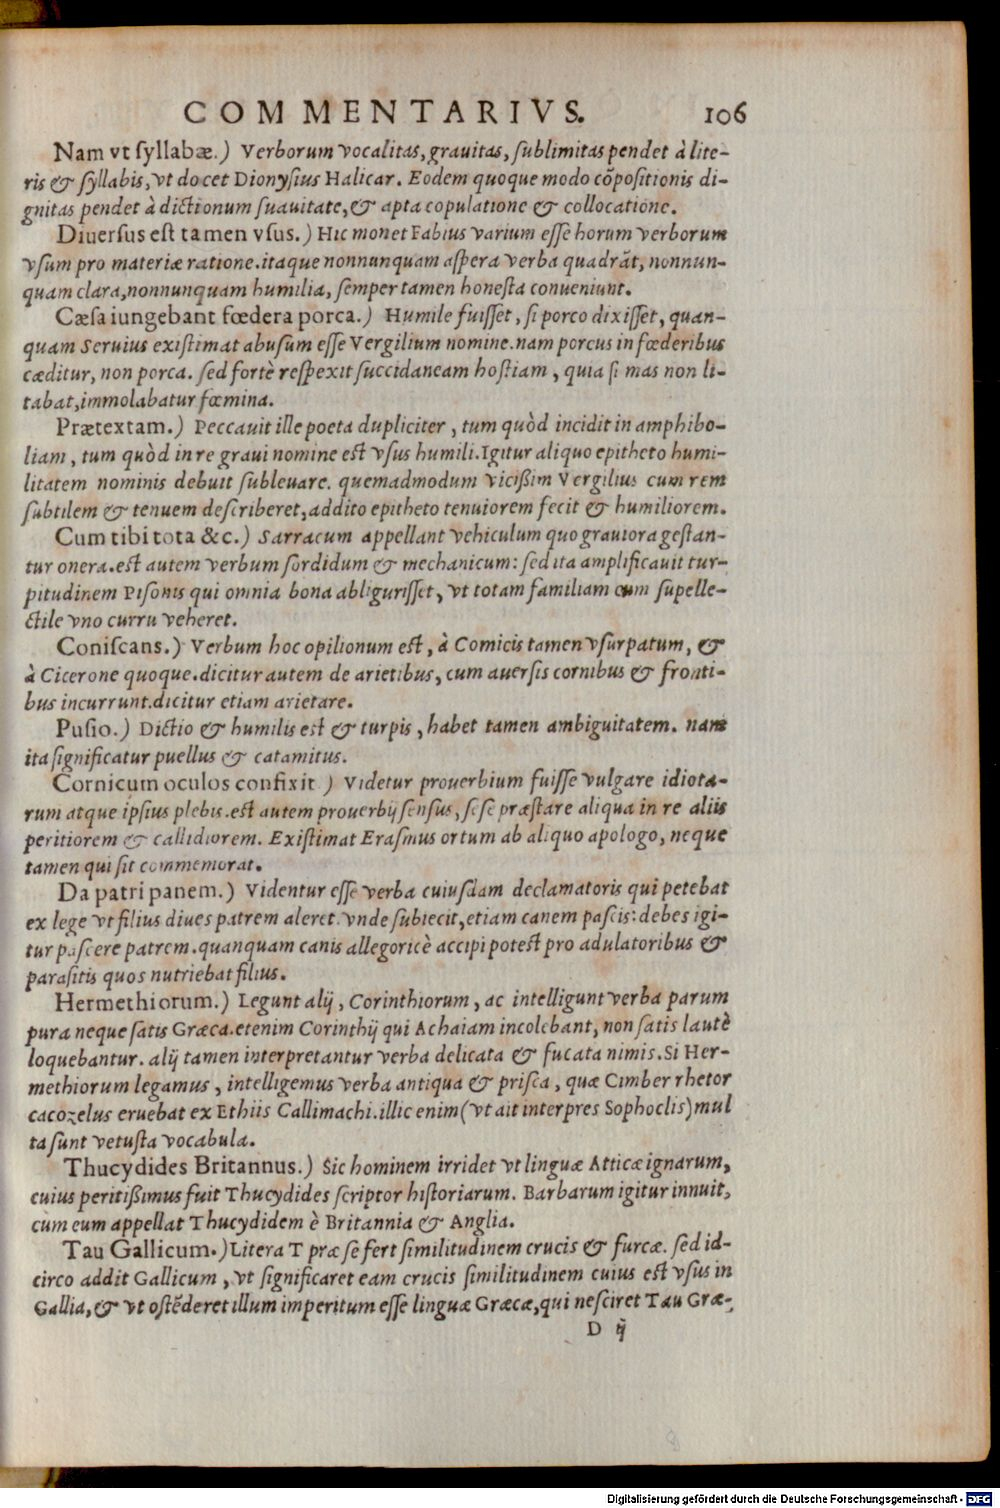 COMMENTARIVS. 106
Nam vt syllabæ.) Verborum vocalitas, grauitas, sublimitas pendet à lite-
ris & syllabis, vt docet Dionysius Halicar. Eodem quoque modo cōpositionis di-
gnitas pendet à dictionum suauitate, & apta copulatione & collocatione.
Diuersus est tamen vsus.) Hic monet Fabius varium esse horum verborum
vsum pro materiæ ratione. itaque nonnunquam aspera verba quadrāt, nonnun-
quam clara, nonnunquam humilia, semper tamen honesta conueniunt.
Cæsa iungebant fœdera porca.) Humile fuisset, si porco dixisset, quan-
quam Seruius existimat abusum esse Vergilium nomine. nam porcus in fœderibus
cæditur, non porca. sed fortè respexit succidaneam hostiam, quia si mas non li-
tabat, immolabatur fœmina.
Prætextam.) Peccauit ille poeta dupliciter, tum quòd incidit in amphibo-
liam, tum quòd in re graui nomine est vsus humili. Igitur aliquo epitheto humi-
litatem nominis debuit subleuare. quemadmodum vicißim Vergilius cum rem
subtilem & tenuem describeret, addito epitheto tenuiorem fecit & humiliorem.
Cum tibi tota &c.) Sarracum appellant vehiculum quo grauiora gestan-
tur onera. est autem verbum sordidum & mechanicum: sed ita amplificauit tur-
pitudinem Pisonis qui omnia bona abligurisset, vt totam familiam cum supelle-
ctile vno curru veheret.
Coniscans.) Verbum hoc opilionum est, à Comicis tamen vsurpatum, &
à Cicerone quoque. dicitur autem de arietibus, cum auersis cornibus & fronti-
bus incurrunt. dicitur etiam arietare.
Pusio.) Dictio & humilis est & turpis, habet tamen ambiguitatem. nam
ita significatur puellus & catamitus.
Cornicum oculos confixit ) Videtur prouerbium fuisse vulgare idiota-
rum atque ipsius plebis. est autem prouerbij sensus, sese præstare aliqua in re aliis
peritiorem & callidiorem. Existimat Erasmus ortum ab aliquo apologo, neque
tamen qui sit commemorat.
Da patri panem.) Videntur esse verba cuiusdam declamatoris qui petebat
ex lege vt filius diues patrem aleret. vnde subiecit, etiam canem pascis: debes igi-
tur pascere patrem. quanquam canis allegoricè accipi potest pro adulatoribus &
parasitis quos nutriebat filius.
Hermethiorum.) Legunt alij, Corinthiorum, ac intelligunt verba parum
pura neque satis Græca. etenim Corinthij qui Achaiam incolebant, non satis lautè
loquebantur. alij tamen interpretantur verba delicata & fucata nimis. Si Her-
methiorum legamus, intelligemus verba antiqua & prisca, quæ Cimber rhetor
cacozelus eruebat ex Ethiis Callimachi. illic enim (vt ait interpres Sophoclis) mul
ta sunt vetusta vocabula.
Thucydides Britannus.) Sic hominem irridet vt linguæ Atticæ ignarum,
cuius peritißimus fuit Thucydides scriptor historiarum. Barbarum igitur innuit,
cùm eum appellat Thucydidem è Britannia & Anglia.
Tau Gallicum.) Litera T præ se fert similitudinem crucis & furcæ. sed id-
circo addit Gallicum, vt significaret eam crucis similitudinem cuius est vsus in
Gallia, & vt ostēderet illum imperitum esse linguæ Græcæ, qui nesciret Tau Græ-
D ij
Digitalisierung gefördert durch die Deutsche Forschungsgemeinschaft - DFG